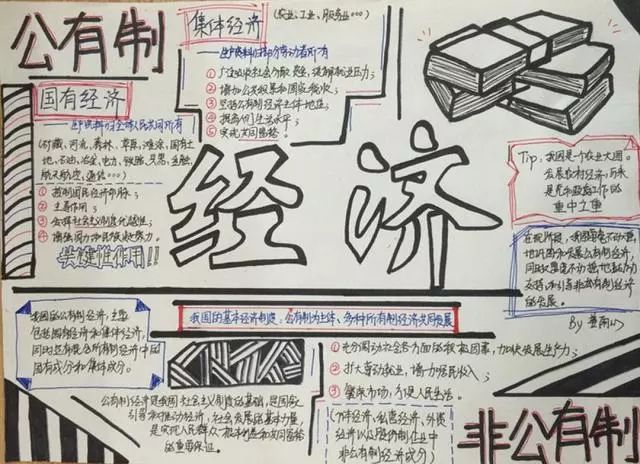 公有制
集体经济
(农业、工业、服务业……)
——生产资料归部分劳动者所有
① 广泛吸收社会分散资金,缓解就业压力;
② 增加公共积累和国家税收;
③ 坚持公有制经济主体地位;
④ 提高人们生活水平;
⑤ 实现共同富裕。
国有经济
——生产资料归全体人民共同所有
(矿藏、河流、森林、草原、滩涂、国有土
地、石油、冶金、电力、铁路、
航天航空、通讯……)
① 控制国民经济命脉;
② 主导作用;
③ 发挥社会主义制度优越性;
④ 增强国力和民族凝聚力。
关键性作用!!
经济
Tip:我国是个农业大国。
发展农村经济,历来
是党和政府工作的
重中之重
在现阶段,我国要毫不动摇
地巩固和发展公有制经济,
同时必须毫不动摇地鼓励、
支持、和引导非公有制经济
的发展。
By
我国的公有制经济,主要
包括国有经济和集体经济,
同时还有混合所有制经济中的
国有成分和集体成分。
我国的基本经济制度:公有制为主体、多种所有制经济共同发展
公有制经济是我国社会主义制度的基础,是国家
引导和推动经济、社会发展的基本力量,
是实现人民群众根本利益和共同富裕
的重要保证。
① 充分调动社会各方面的积极因素,加快发展生产力;
② 扩大劳动就业,增加居民收入;
③ 繁荣市场,方便人民生活。
(个体经济、私营经济、外资
经济以及股份制企业中
非公有制经济成分)
非公有制